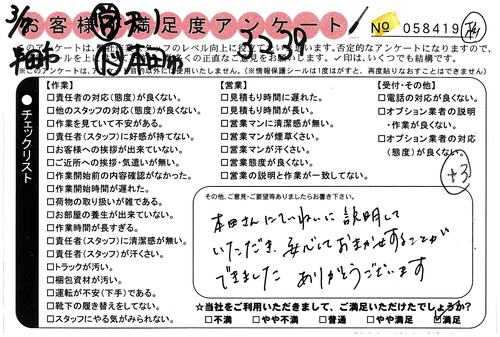 お客様不満足度アンケート
№ 058419
3/7
3.2.39
このアンケートは、
✓印は、いくつでも結構です。
※このアンケートは、
(※情報保護シールは1度はがすと、再度貼りなおすことはできません)
チェックリスト
【作業】
□責任者の対応(態度)が良くない。
□他のスタッフの対応(態度)が良くない。
□作業を見ていて不安がある。
□責任者(スタッフ)に好感が持てない。
□お客様への挨拶が出来ていない。
□ご近所への挨拶・気遣いが無い。
□作業開始前の内容確認がなかった。
□作業開始時間が遅れた。
□荷物の取り扱いが雑である。
□お部屋の養生が出来ていない。
□作業時間が長すぎる。
□責任者(スタッフ)に清潔感が無い。
□責任者(スタッフ)が汗くさい。
□トラックが汚い。
□梱包資材が汚い。
□運転が不安(下手)である。
□靴下の履き替えをしてない。
□スタッフにやる気がみられない。
【営業】
□見積もり時間に遅れた。
□見積もり時間が長い。
□営業マンに清潔感が無い。
□営業マンが煙草くさい。
□営業マンが汗くさい。
□営業態度が良くない。
□営業の説明と作業が一致してない。
【受付・その他】
□電話の対応が良くない。
□オプション業者の説明
・作業が良くない。
□オプション業者の対応
(態度)が良くない。
+3
その他、ご意見・ご要望等ありましたらお書き下さい。
本田さんにていねいに説明して
いただき、安心しておまかせすることが
できました ありがとうございます
☆当社をご利用いただきまして、ご満足いただけたでしょうか?
□不満 □やや不満 □普通 □やや満足 ☑満足